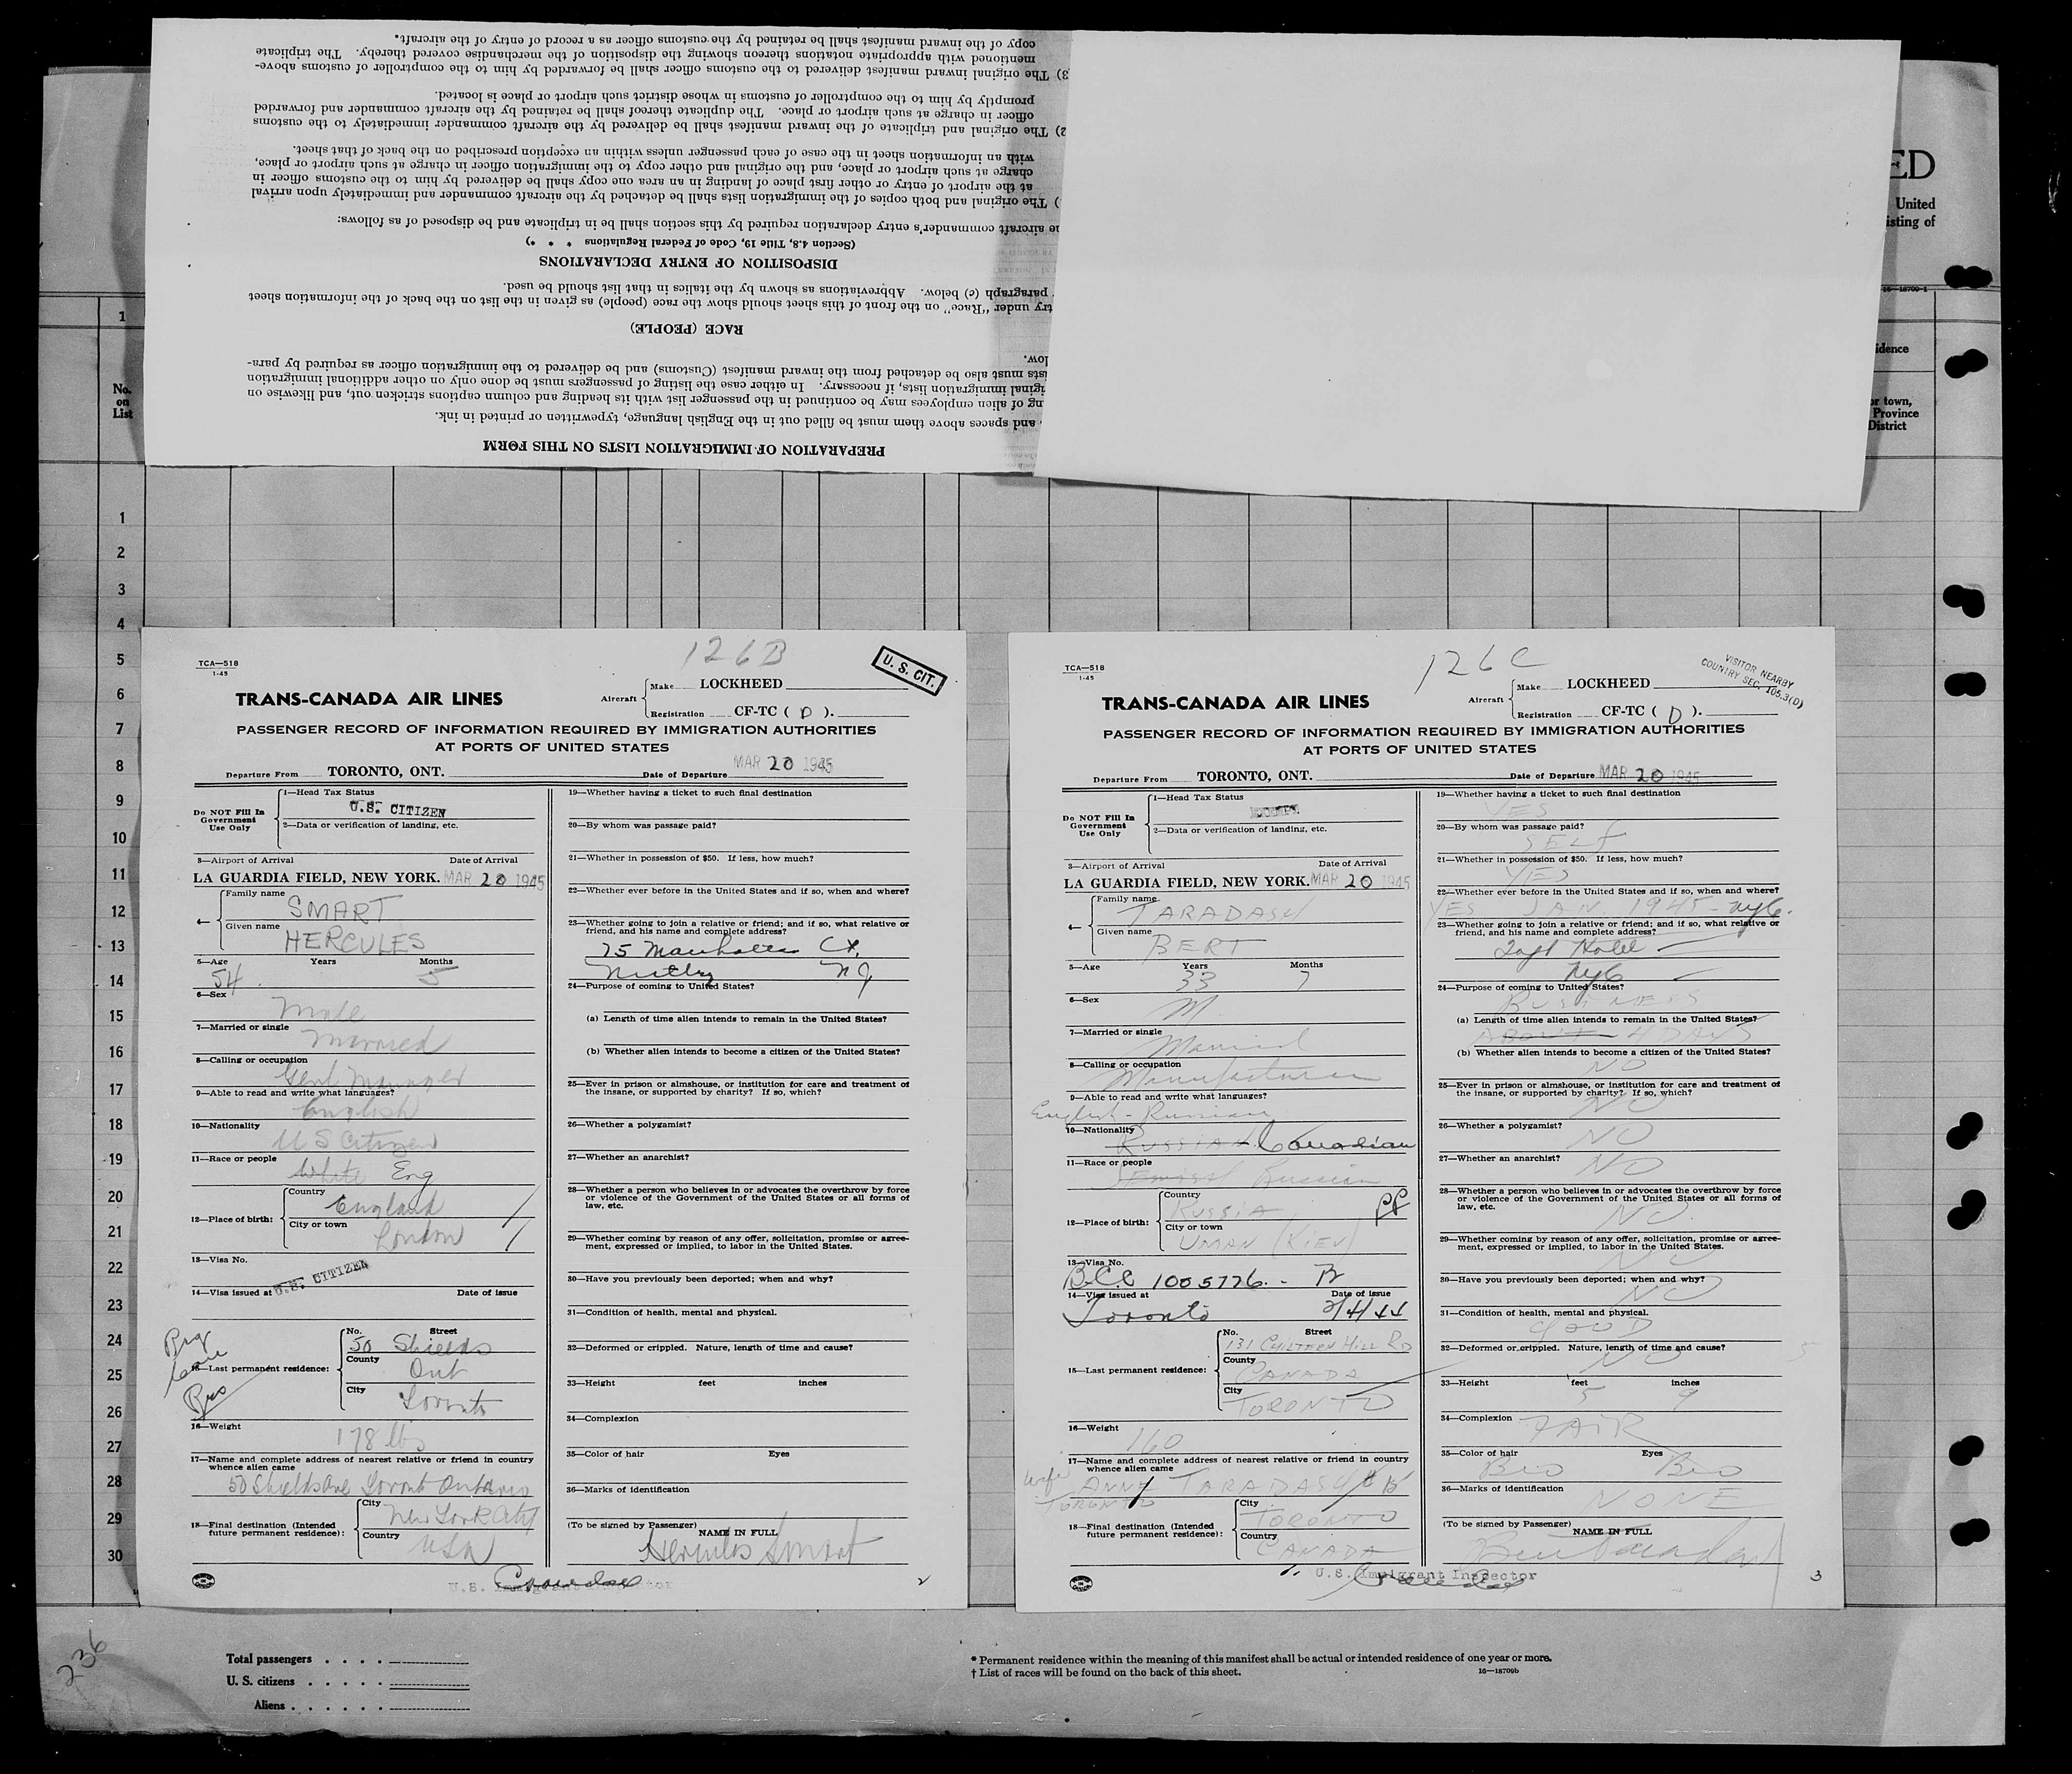 PREPARATION OF IMMIGRATION LISTS ON THIS FORM
and spaces above them must be filled out in the English language, typewritten or printed in ink.
ng of alien employees may be continued in the passenger list with its heading and column captions stricken out, and likewise on
iginal immigration lists, if necessary. In either case the listing of passengers must be done only on other additional immigration
ists must also be detached from the inward manifest (Customs) and be delivered to the immigration officer as required by para-
low.
RACE (PEOPLE)
try under "Race" on the front of this sheet should show the race (people) as given in the list on the back of the information sheet
paragraph (c) below. Abbreviations as shown by the italics in that list should be used.
DISPOSITION OF ENTRY DECLARATIONS
(Section 4.8, Title 19, Code of Federal Regulations * * *)
he aircraft commander's entry declaration required by this section shall be in triplicate and be disposed of as follows:
) The original and both copies of the immigration lists shall be detached by the aircraft commander and immediately upon arrival
at the airport of entry or other first place of landing in an area one copy shall be delivered by him to the customs officer in
charge at such airport or place, and the original and other copy to the immigration officer in charge at such airport or place,
with an information sheet in the case of each passenger unless within an exception prescribed on the back of that sheet.
2) The original and triplicate of the inward manifest shall be delivered by the aircraft commander immediately to the customs
officer in charge at such airport or place. The duplicate thereof shall be retained by the aircraft commander and forwarded
promptly by him to the comptroller of customs in whose district such airport or place is located.
3) The original inward manifest delivered to the customs officer shall be forwarded by him to the comptroller of customs above-
mentioned with appropriate notations thereon showing the disposition of the merchandise covered thereby. The triplicate
copy of the inward manifest shall be retained by the customs officer as a record of entry of the aircraft.
ED
United
isting of
16—18709-1
idence
or town,
Province
District
1
No.
on
List
1
2
3
4
5
6
7
8
9
10
11
12
13
14
15
16
17
18
19
20
21
22
23
24
25
26
27
28
29
30
126B
U. S. CIT.
TCA—518
1-45
TRANS-CANADA AIR LINES
Aircraft
Make LOCKHEED
Registration CF-TC ( D ).
PASSENGER RECORD OF INFORMATION REQUIRED BY IMMIGRATION AUTHORITIES
AT PORTS OF UNITED STATES
Departure From TORONTO, ONT. Date of Departure MAR 20 1945
Do NOT Fill In
Government
Use Only
1—Head Tax Status
U.S. CITIZEN
2—Data or verification of landing, etc.
3—Airport of Arrival Date of Arrival
LA GUARDIA FIELD, NEW YORK. MAR 20 1945
4—
Family name
SMART
Given name
HERCULES
5—Age Years Months
54 5
6—Sex
Male
7—Married or single
Married
8—Calling or occupation
Genl Manager
9—Able to read and write what languages?
English
10—Nationality
U S Citizen
11—Race or people
White Eng
12—Place of birth:
Country
England
City or town
London
13—Visa No.
U.S. CITIZEN
14—Visa issued at Date of issue
15—Last permanent residence:
No. Street
50 Shields
County
Ont
City
Toronto
16—Weight
178 lbs
17—Name and complete address of nearest relative or friend in country
whence alien came
50 Shields Ave Toronto Ontario
18—Final destination (Intended
future permanent residence):
City
New York City
Country
USA
19—Whether having a ticket to such final destination
20—By whom was passage paid?
21—Whether in possession of $50. If less, how much?
22—Whether ever before in the United States and if so, when and where?
23—Whether going to join a relative or friend; and if so, what relative or
friend, and his name and complete address?
75 Manhattan Ct,
Nutley NJ
24—Purpose of coming to United States?
(a) Length of time alien intends to remain in the United States?
(b) Whether alien intends to become a citizen of the United States?
25—Ever in prison or almshouse, or institution for care and treatment of
the insane, or supported by charity? If so, which?
26—Whether a polygamist?
27—Whether an anarchist?
28—Whether a person who believes in or advocates the overthrow by force
or violence of the Government of the United States or all forms of
law, etc.
29—Whether coming by reason of any offer, solicitation, promise or agree-
ment, expressed or implied, to labor in the United States.
30—Have you previously been deported; when and why?
31—Condition of health, mental and physical.
32—Deformed or crippled. Nature, length of time and cause?
33—Height feet inches
34—Complexion
35—Color of hair Eyes
36—Marks of identification
(To be signed by Passenger) NAME IN FULL
Hercules Smart
2
126C
VISITOR NEARBY
COUNTRY SEC. 105.3(D)
TCA—518
1-45
TRANS-CANADA AIR LINES
Aircraft
Make LOCKHEED
Registration CF-TC ( D ).
PASSENGER RECORD OF INFORMATION REQUIRED BY IMMIGRATION AUTHORITIES
AT PORTS OF UNITED STATES
Departure From TORONTO, ONT. Date of Departure MAR 20 1945
Do NOT Fill In
Government
Use Only
1—Head Tax Status
2—Data or verification of landing, etc.
3—Airport of Arrival Date of Arrival
LA GUARDIA FIELD, NEW YORK. MAR 20 1945
4—
Family name
TARADASH
Given name
BERT
5—Age Years Months
33 7
6—Sex
M
7—Married or single
Married
8—Calling or occupation
Manufacturer
9—Able to read and write what languages?
English - Russian
10—Nationality
RUSSIAN Canadian
11—Race or people
Russian
12—Place of birth:
Country
RUSSIA
City or town
UMAN (KIEV)
13—Visa No.
B.C.C 1005776. -
14—Visa issued at Date of issue
Toronto 2/4/44
15—Last permanent residence:
No. Street
131 CHILTERN HILL RD
County
CANADA
City
TORONTO
16—Weight
160
17—Name and complete address of nearest relative or friend in country
whence alien came
wife ANNE TARADASH
TORONTO
18—Final destination (Intended
future permanent residence):
City
TORONTO
Country
CANADA
19—Whether having a ticket to such final destination
YES
20—By whom was passage paid?
SELF
21—Whether in possession of $50. If less, how much?
YES
22—Whether ever before in the United States and if so, when and where?
YES JAN. 1945 - NYC.
23—Whether going to join a relative or friend; and if so, what relative or
friend, and his name and complete address?
Taft Hotel
NYC
24—Purpose of coming to United States?
BUSINESS
(a) Length of time alien intends to remain in the United States?
ABOUT 4 DAYS
(b) Whether alien intends to become a citizen of the United States?
NO
25—Ever in prison or almshouse, or institution for care and treatment of
the insane, or supported by charity? If so, which?
NO
26—Whether a polygamist?
NO
27—Whether an anarchist?
NO
28—Whether a person who believes in or advocates the overthrow by force
or violence of the Government of the United States or all forms of
law, etc.
NO
29—Whether coming by reason of any offer, solicitation, promise or agree-
ment, expressed or implied, to labor in the United States.
NO
30—Have you previously been deported; when and why?
NO
31—Condition of health, mental and physical.
GOOD
32—Deformed or crippled. Nature, length of time and cause?
NO
33—Height feet inches
5 9
34—Complexion
FAIR
35—Color of hair Eyes
Bro Bro
36—Marks of identification
NONE
(To be signed by Passenger) NAME IN FULL
Bert Taradash
U.S. Immigrant Inspector
3
236
Total passengers . . . .
U. S. citizens . . . . .
Aliens . . . . . .
* Permanent residence within the meaning of this manifest shall be actual or intended residence of one year or more.
† List of races will be found on the back of this sheet.
16—18709b